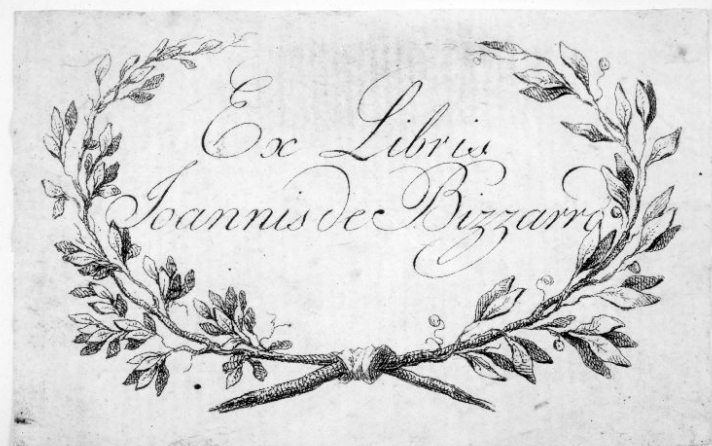 Ex Libris
Joannis de Bizzarro